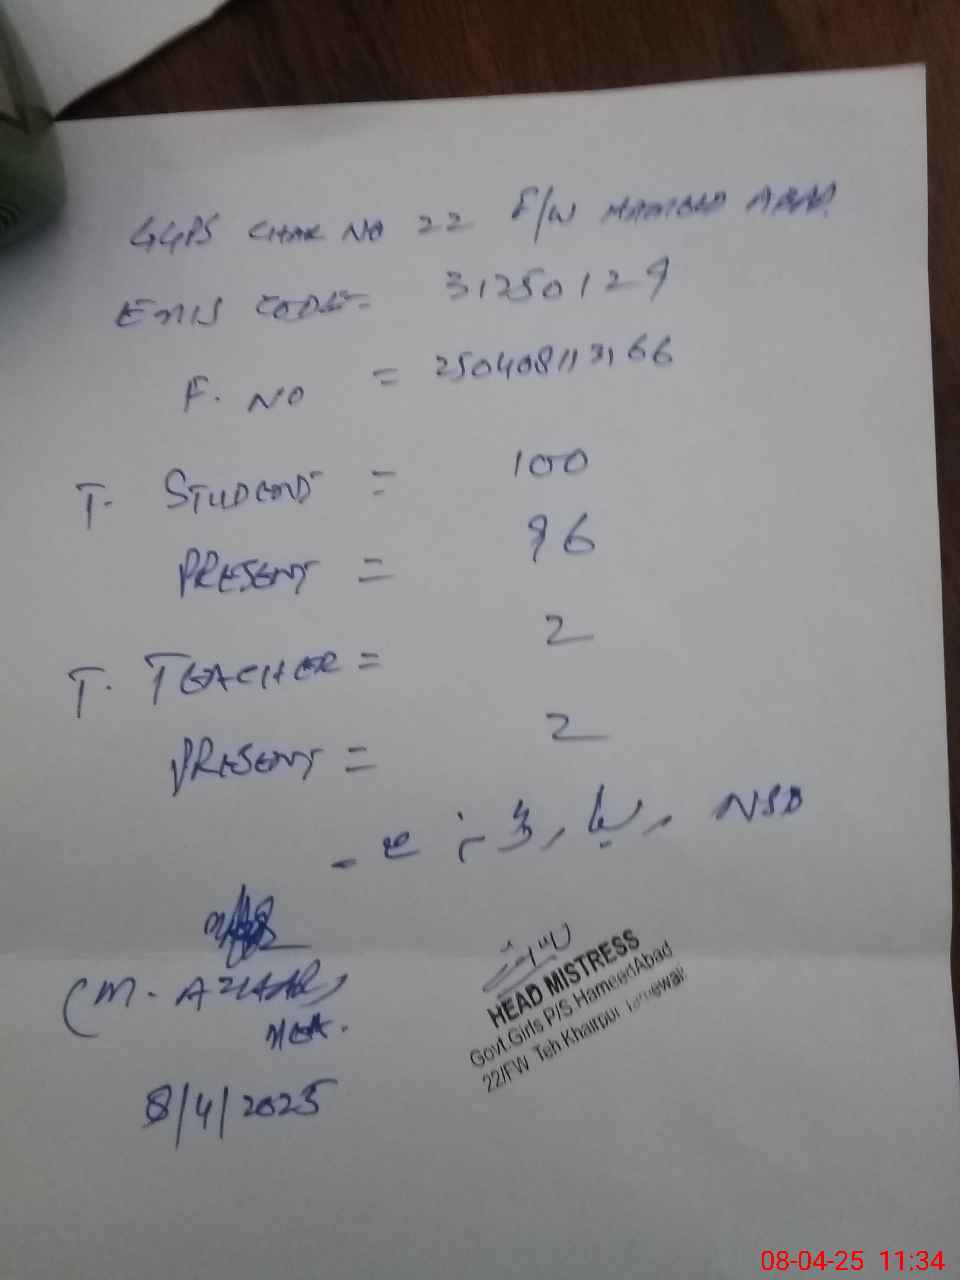 GGPS CHAK NO 22 F/W HAMEED ABAD
EMIS CODE= 31250129
F. NO = 250408113166
T. STUDENT = 100
PRESENT = 96
T. TEACHER = 2
PRESENT = 2
NSB
(M. AZHAR)
MEA.
8/4/2025
HEAD MISTRESS
Govt.Girls P/S HameedAbad
22/FW Teh Khairpur Tamewali
08-04-25 11:34